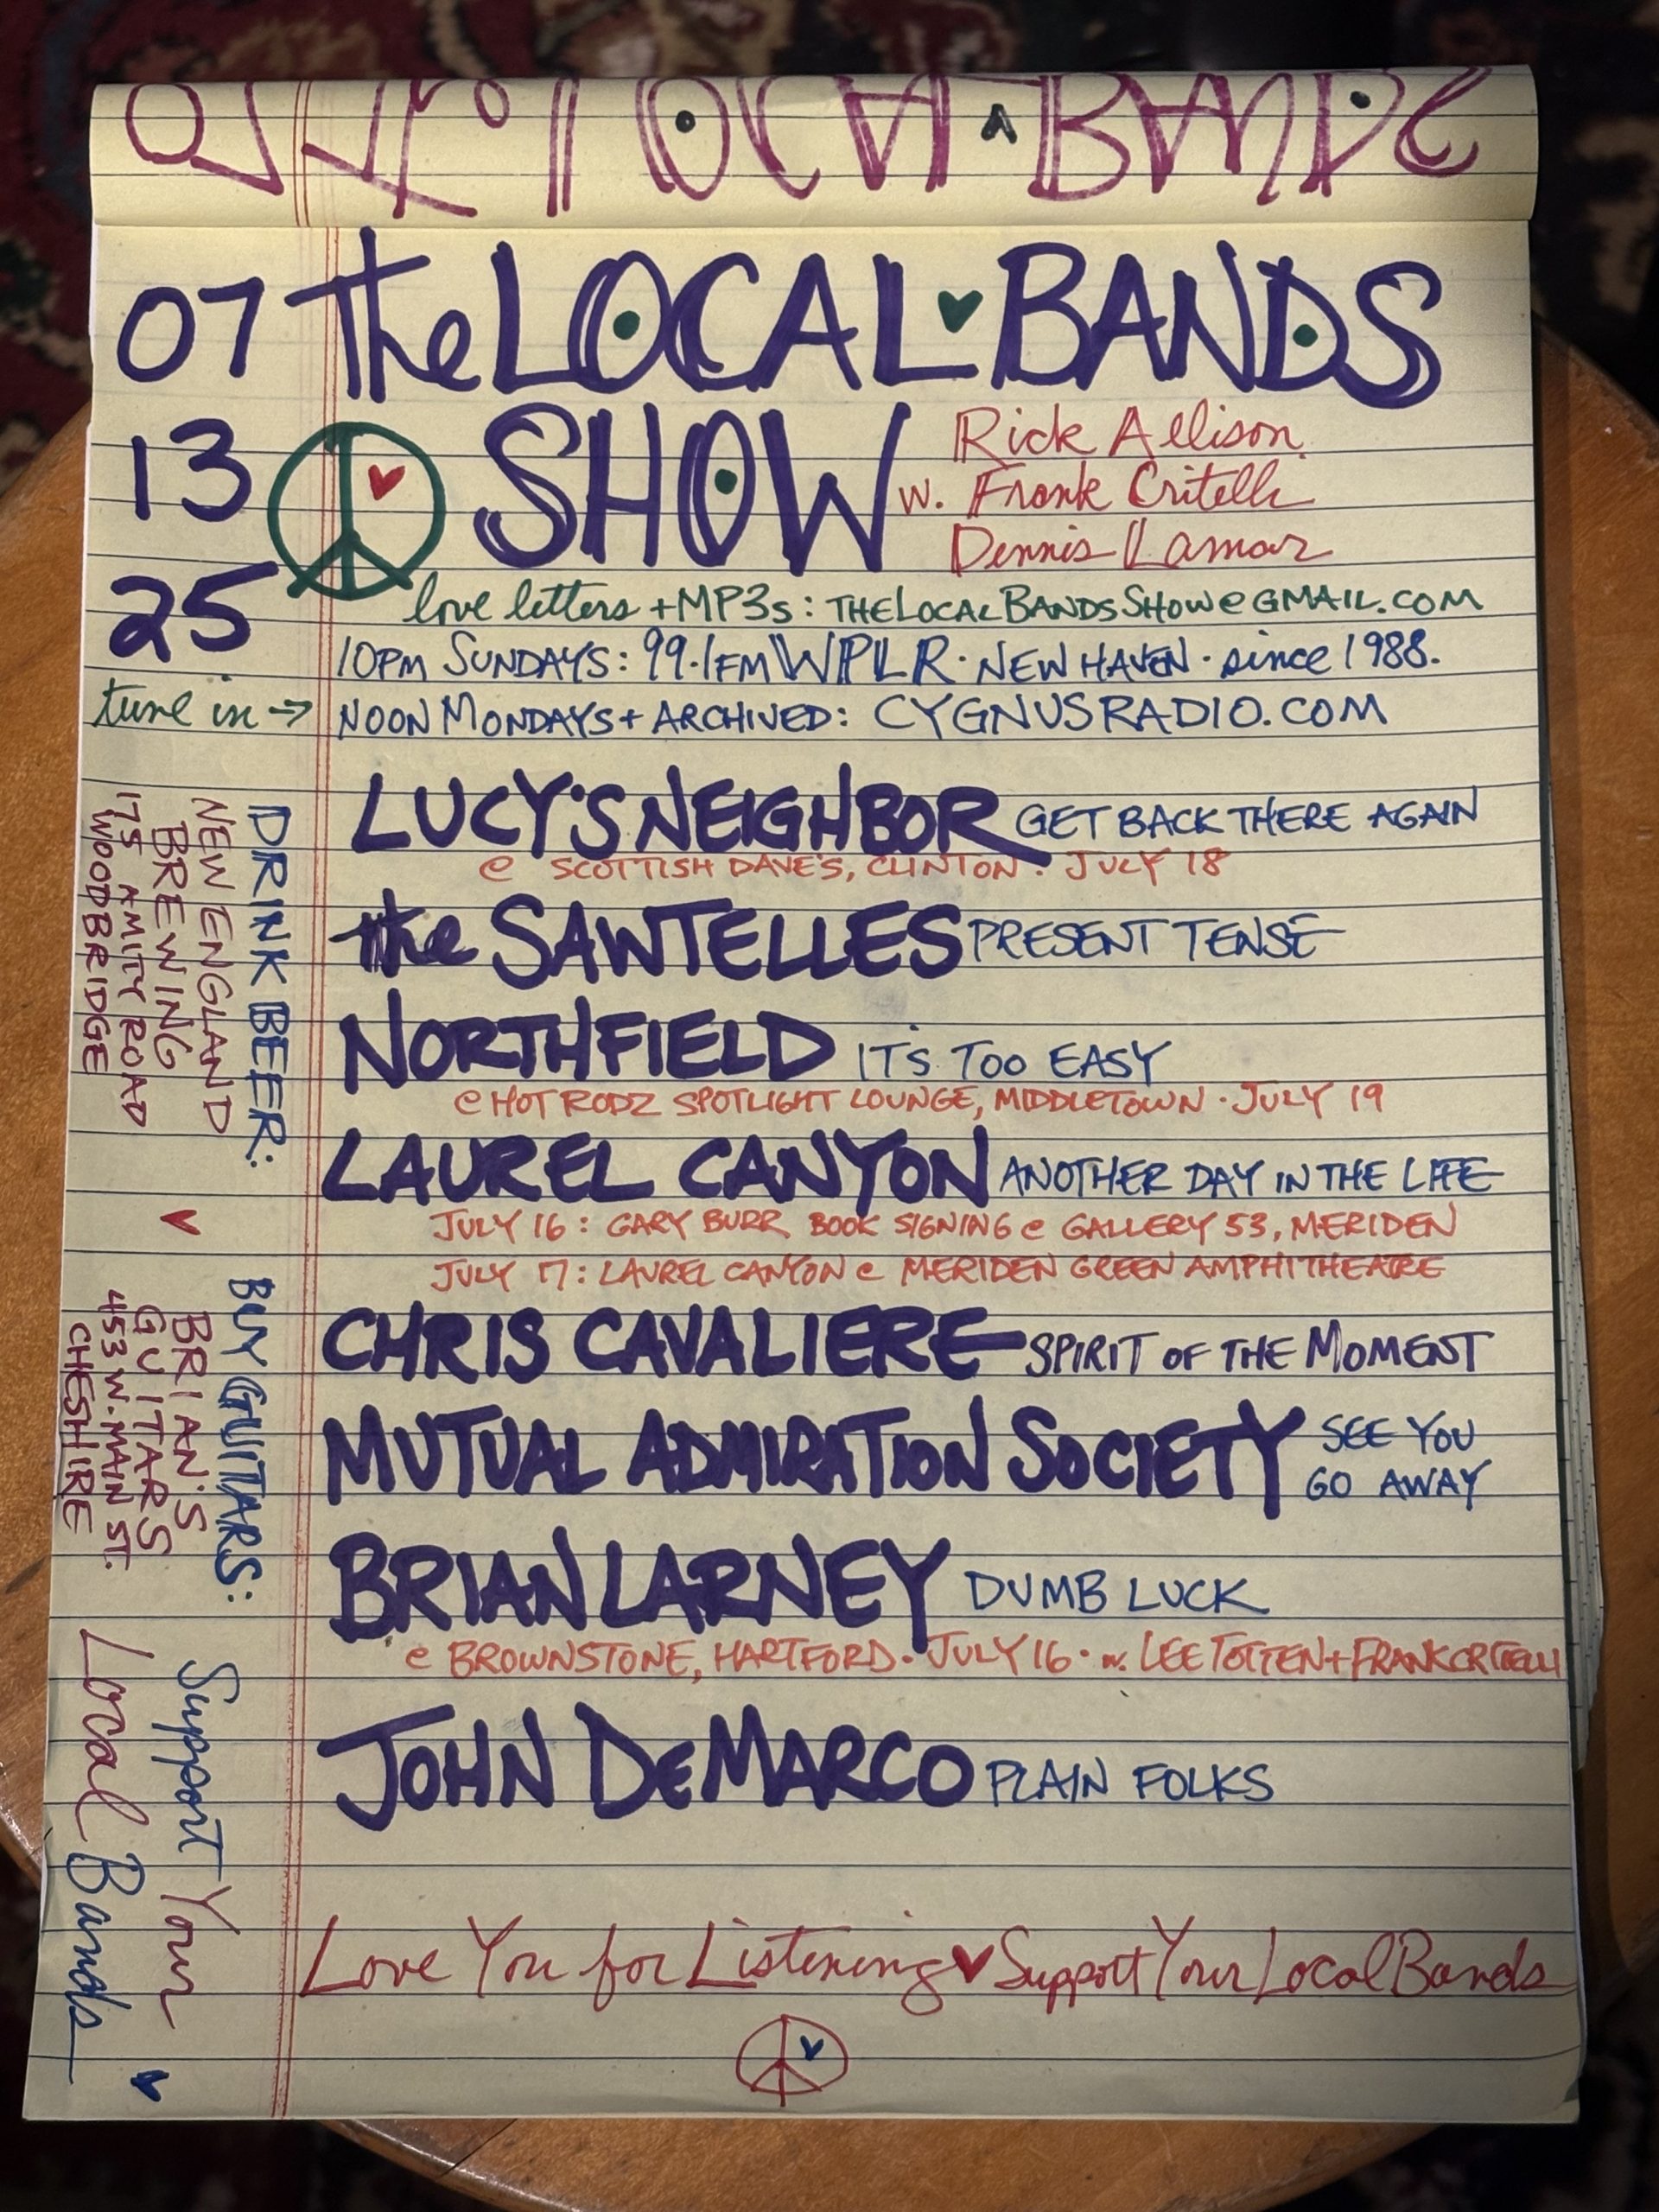 07 The LOCAL BANDS
13 SHOW Rick Allison
w. Frank Critelli
Dennis Lamar
25
love letters + MP3s: THELOCALBANDSSHOW@GMAIL.COM
10PM SUNDAYS: 99.1FM WPLR · NEW HAVEN · since 1988.
tune in → NOON MONDAYS + ARCHIVED: CYGNUSRADIO.COM
LUCY'S NEIGHBOR GET BACK THERE AGAIN
@ SCOTTISH DAVE'S, CLINTON · JULY 18
the SAWTELLES PRESENT TENSE
NORTHFIELD IT'S TOO EASY
@ HOT RODZ SPOTLIGHT LOUNGE, MIDDLETOWN · JULY 19
LAUREL CANYON ANOTHER DAY IN THE LIFE
JULY 16: GARY BURR BOOK SIGNING @ GALLERY 53, MERIDEN
JULY 17: LAUREL CANYON @ MERIDEN GREEN AMPHITHEATRE
CHRIS CAVALIERE SPIRIT OF THE MOMENT
MUTUAL ADMIRATION SOCIETY SEE YOU
GO AWAY
BRIAN LARNEY DUMB LUCK
@ BROWNSTONE, HARTFORD · JULY 16 · w. LEE TOTTEN + FRANK CRITELLI
JOHN DeMARCO PLAIN FOLKS
Love You for Listening ♥ Support Your Local Bands
DRINK BEER:
NEW ENGLAND
BREWING
175 AMITY ROAD
WOODBRIDGE
BUY GUITARS:
BRIAN'S
GUITARS
453 W. MAIN ST.
CHESHIRE
Support Your
Local Bands